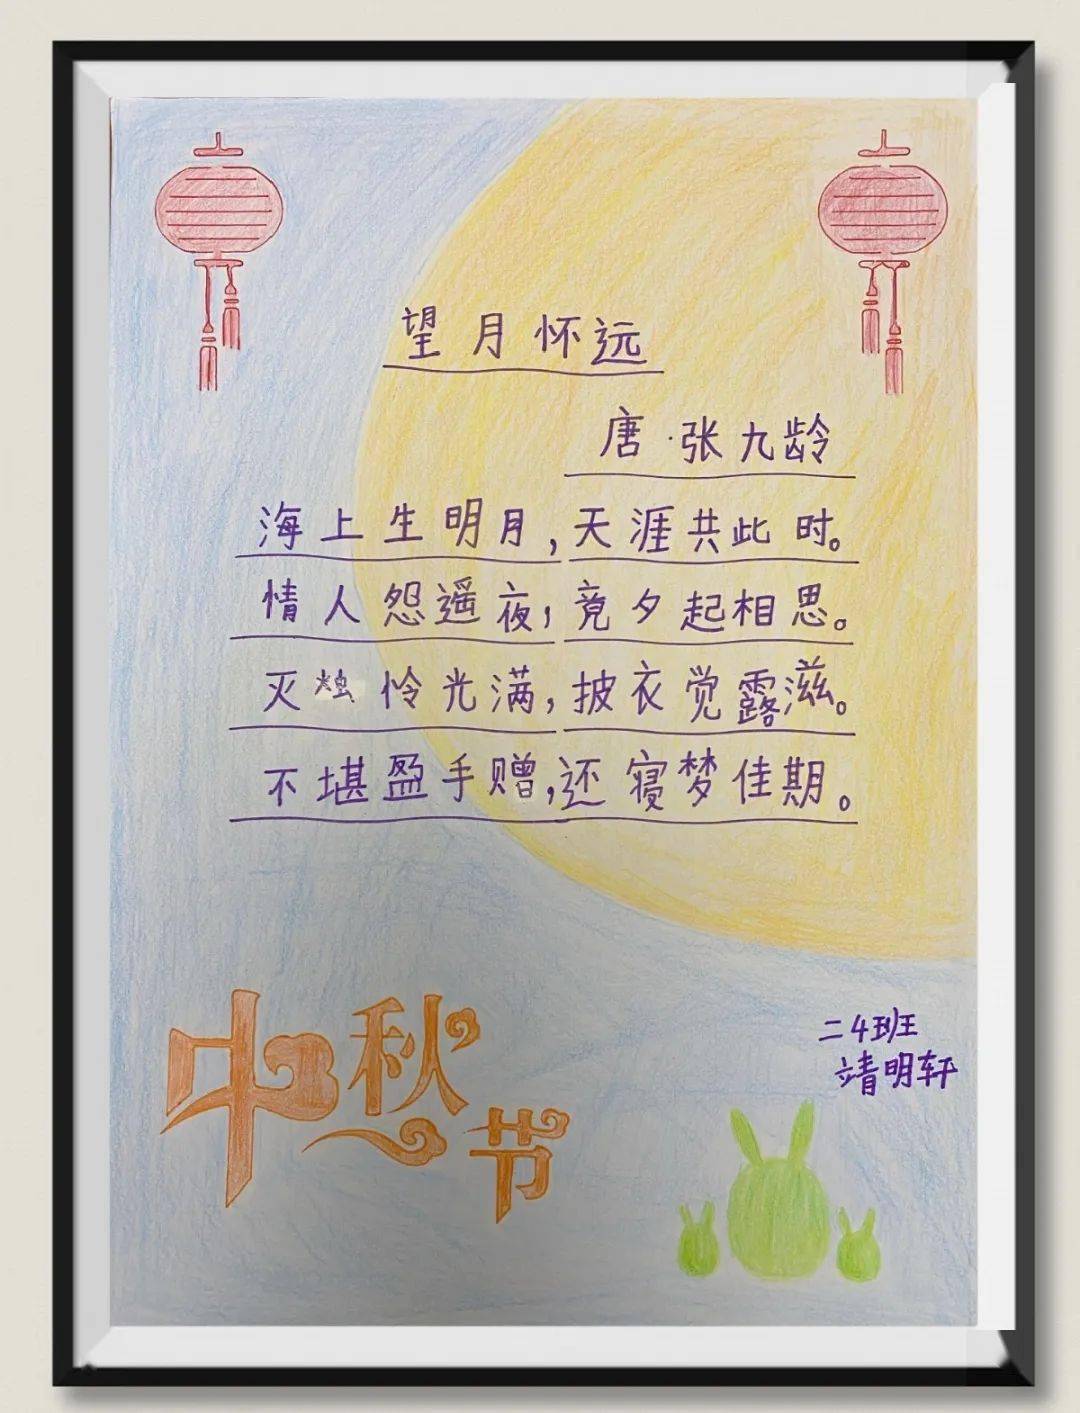 望月怀远
唐·张九龄
海上生明月,天涯共此时。
情人怨遥夜,竟夕起相思。
灭烛怜光满,披衣觉露滋。
不堪盈手赠,还寝梦佳期。
中秋节
二4班
靖明轩